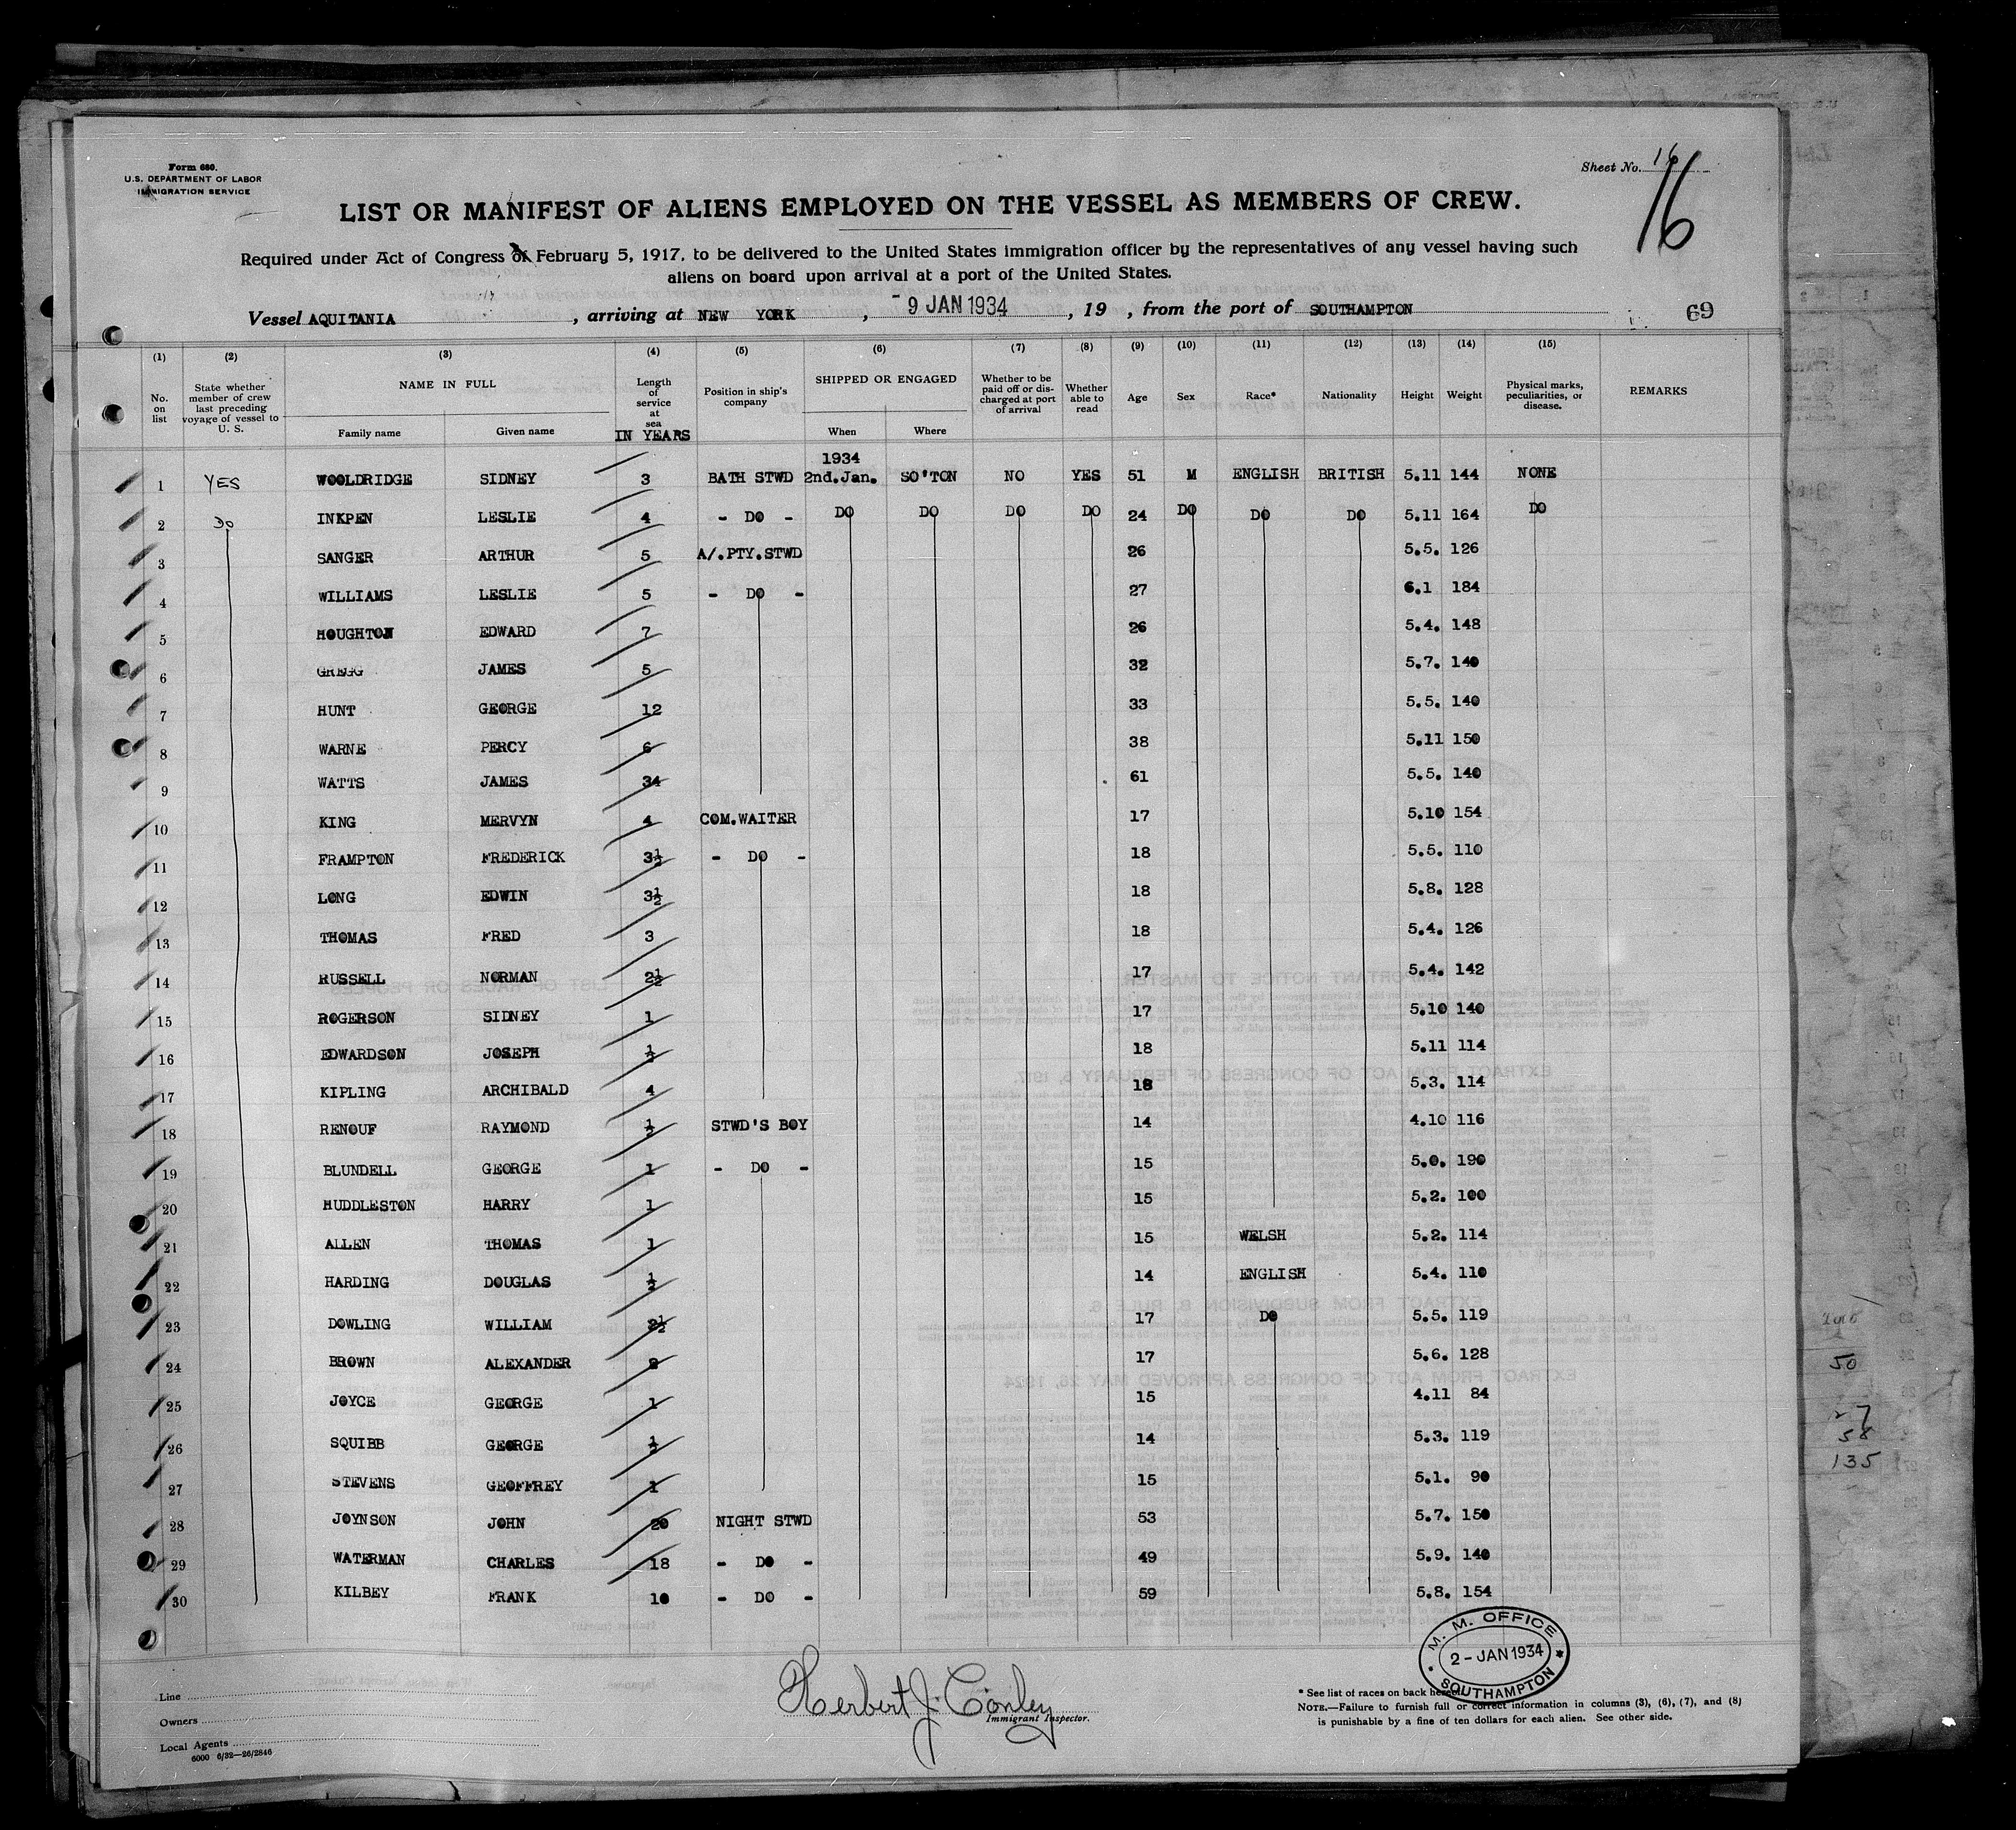 Form 680.
U.S. DEPARTMENT OF LABOR
IMMIGRATION SERVICE
Sheet No. 16
16
LIST OR MANIFEST OF ALIENS EMPLOYED ON THE VESSEL AS MEMBERS OF CREW.
Required under Act of Congress of February 5, 1917, to be delivered to the United States immigration officer by the representatives of any vessel having such
aliens on board upon arrival at a port of the United States.
Vessel AQUITANIA, arriving at NEW YORK, -9 JAN 1934, 19 , from the port of SOUTHAMPTON
69
(1) (2) (3) (4) (5) (6) (7) (8) (9) (10) (11) (12) (13) (14) (15)
No. on list State whether member of crew last preceding voyage of vessel to U. S. NAME IN FULL Family name Given name Length of service at sea IN YEARS Position in ship's company SHIPPED OR ENGAGED When Where Whether to be paid off or discharged at port of arrival Whether able to read Age Sex Race* Nationality Height Weight Physical marks, peculiarities, or disease. REMARKS
1934
1 YES WOOLDRIDGE SIDNEY 3 BATH STWD 2nd.Jan. SO'TON NO YES 51 M ENGLISH BRITISH 5.11 144 NONE
2 Do INKPEN LESLIE 4 - DO - DO DO DO DO 24 DO DO DO 5.11 164 DO
3 SANGER ARTHUR 5 A/.PTY.STWD 26 5.5. 126
4 WILLIAMS LESLIE 5 - DO - 27 6.1 184
5 HOUGHTON EDWARD 7 26 5.4. 148
6 GREGG JAMES 5 32 5.7. 140
7 HUNT GEORGE 12 33 5.5. 140
8 WARNE PERCY 6 38 5.11 150
9 WATTS JAMES 34 61 5.5. 140
10 KING MERVYN 4 COM.WAITER 17 5.10 154
11 FRAMPTON FREDERICK 3½ - DO - 18 5.5. 110
12 LONG EDWIN 3½ 18 5.8. 128
13 THOMAS FRED 3 18 5.4. 126
14 RUSSELL NORMAN 2½ 17 5.4. 142
15 ROGERSON SIDNEY 1 17 5.10 140
16 EDWARDSON JOSEPH ½ 18 5.11 114
17 KIPLING ARCHIBALD 4 18 5.3. 114
18 RENOUF RAYMOND ½ STWD'S BOY 14 4.10 116
19 BLUNDELL GEORGE 1 - DO - 15 5.0. 190
20 HUDDLESTON HARRY 1 15 5.2. 100
21 ALLEN THOMAS 1 15 WELSH 5.2. 114
22 HARDING DOUGLAS ½ 14 ENGLISH 5.4. 110
23 DOWLING WILLIAM 2½ 17 DO 5.5. 119
24 BROWN ALEXANDER 2 17 5.6. 128
25 JOYCE GEORGE 1 15 4.11 84
26 SQUIBB GEORGE ½ 14 5.3. 119
27 STEVENS GEOFFREY 1 15 5.1. 90
28 JOYNSON JOHN 20 NIGHT STWD 53 5.7. 150
29 WATERMAN CHARLES 18 - DO - 49 5.9. 140
30 KILBEY FRANK 10 - DO - 59 5.8. 154
50
58
135
M. M. OFFICE
2-JAN 1934
SOUTHAMPTON
Line
Owners
Local Agents
6000 6/32-26/2846
Herbert J. Conley
Immigrant Inspector.
* See list of races on back hereof.
NOTE.—Failure to furnish full or correct information in columns (3), (6), (7), and (8)
is punishable by a fine of ten dollars for each alien. See other side.